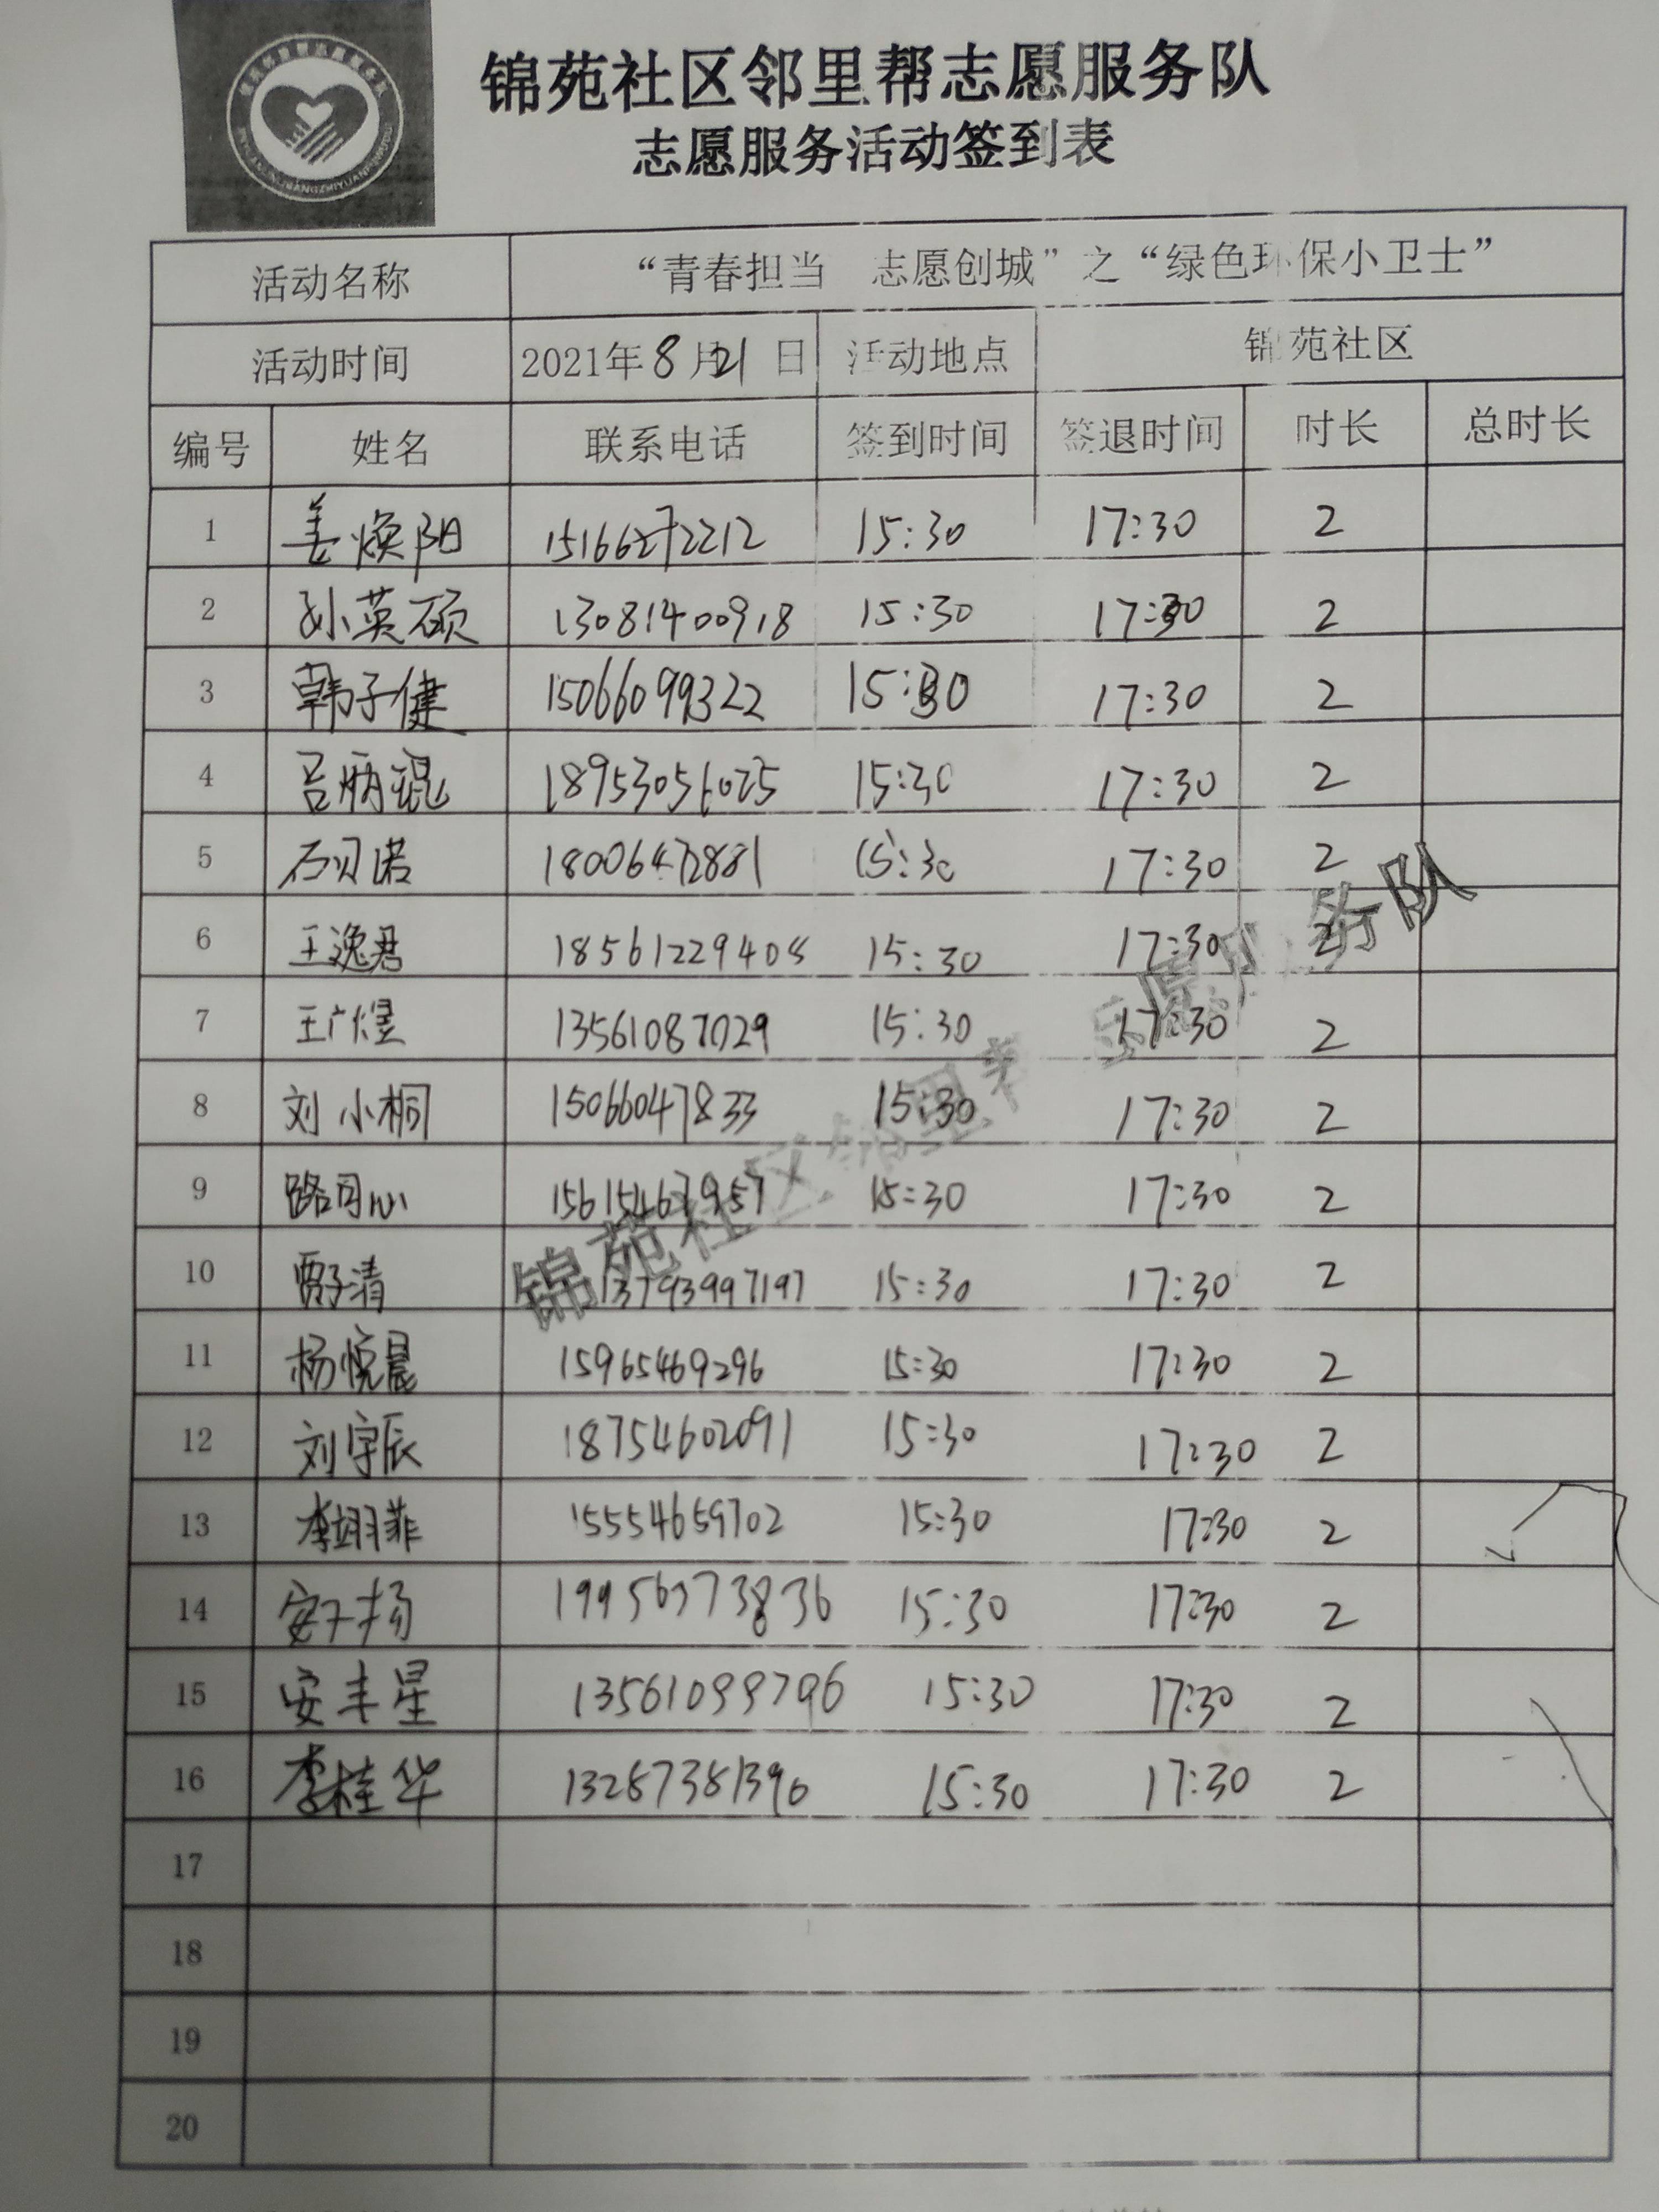 锦苑社区邻里帮志愿服务队
志愿服务活动签到表
活动名称 “青春担当 志愿创城”之“绿色环保小卫士”
活动时间 2021年8月21日 活动地点 锦苑社区
编号 姓名 联系电话 签到时间 签退时间 时长 总时长
1 姜焕阳 15166272212 15:30 17:30 2
2 孙英硕 13081400918 15:30 17:30 2
3 韩子健 15066099322 15:30 17:30 2
4 吕炳琨 18953056025 15:30 17:30 2
5 石贝诺 18006472881 15:30 17:30 2
6 王逸君 18561229408 15:30 17:30 2
7 王广煜 13561087029 15:30 17:30 2
8 刘小桐 15066047833 15:30 17:30 2
9 路同心 15615467957 15:30 17:30 2
10 贾子清 13793997197 15:30 17:30 2
11 杨悦晨 15965469296 15:30 17:30 2
12 刘宇辰 18754602091 15:30 17:30 2
13 李翊菲 15554659702 15:30 17:30 2
14 安扬 19956373836 15:30 17:30 2
15 安丰星 13561099796 15:30 17:30 2
16 李桂华 13287381396 15:30 17:30 2
17
18
19
20
锦苑社区邻里帮志愿服务队